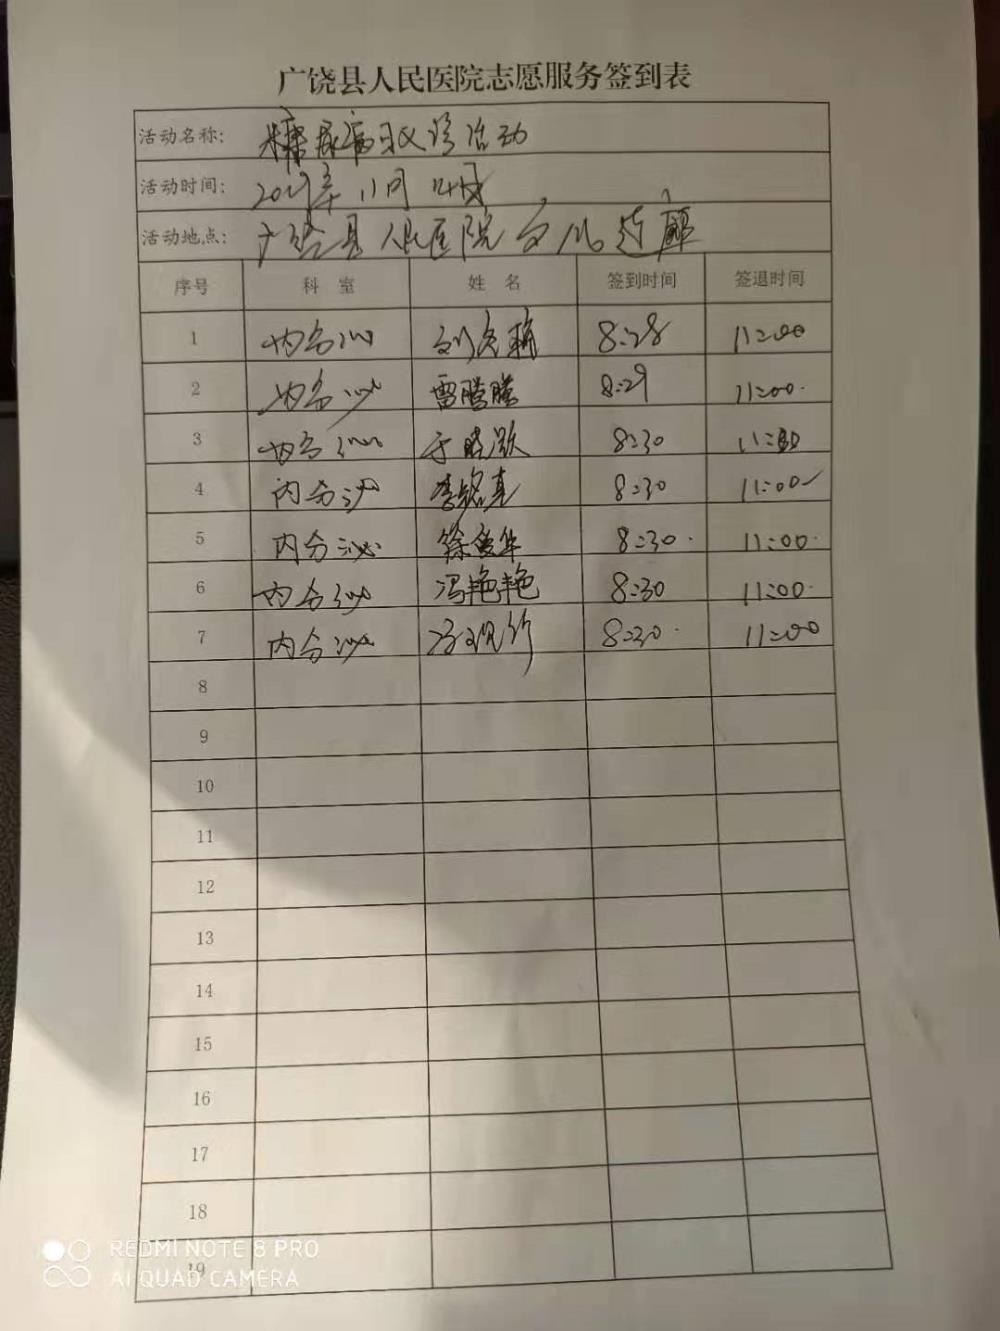 广饶县人民医院志愿服务签到表
活动名称: 糖尿病日义诊活动
活动时间: 2019年 11月 14日
活动地点: 广饶县人民医院 门诊 连廊
序号 科 室 姓 名 签到时间 签退时间
1 内分泌 8:28 11:00
2 内分泌 雷腾腾 8:29 11:00
3 内分泌 于晓 8:30 11:30
4 内分泌 李铭真 8:30 11:00
5 内分泌 徐爱华 8:30 11:00
6 内分泌 冯艳艳 8:30 11:00
7 内分泌 8:30 11:00
8
9
10
11
12
13
14
15
16
17
18
19
REDMI NOTE 8 PRO
AI QUAD CAMERA